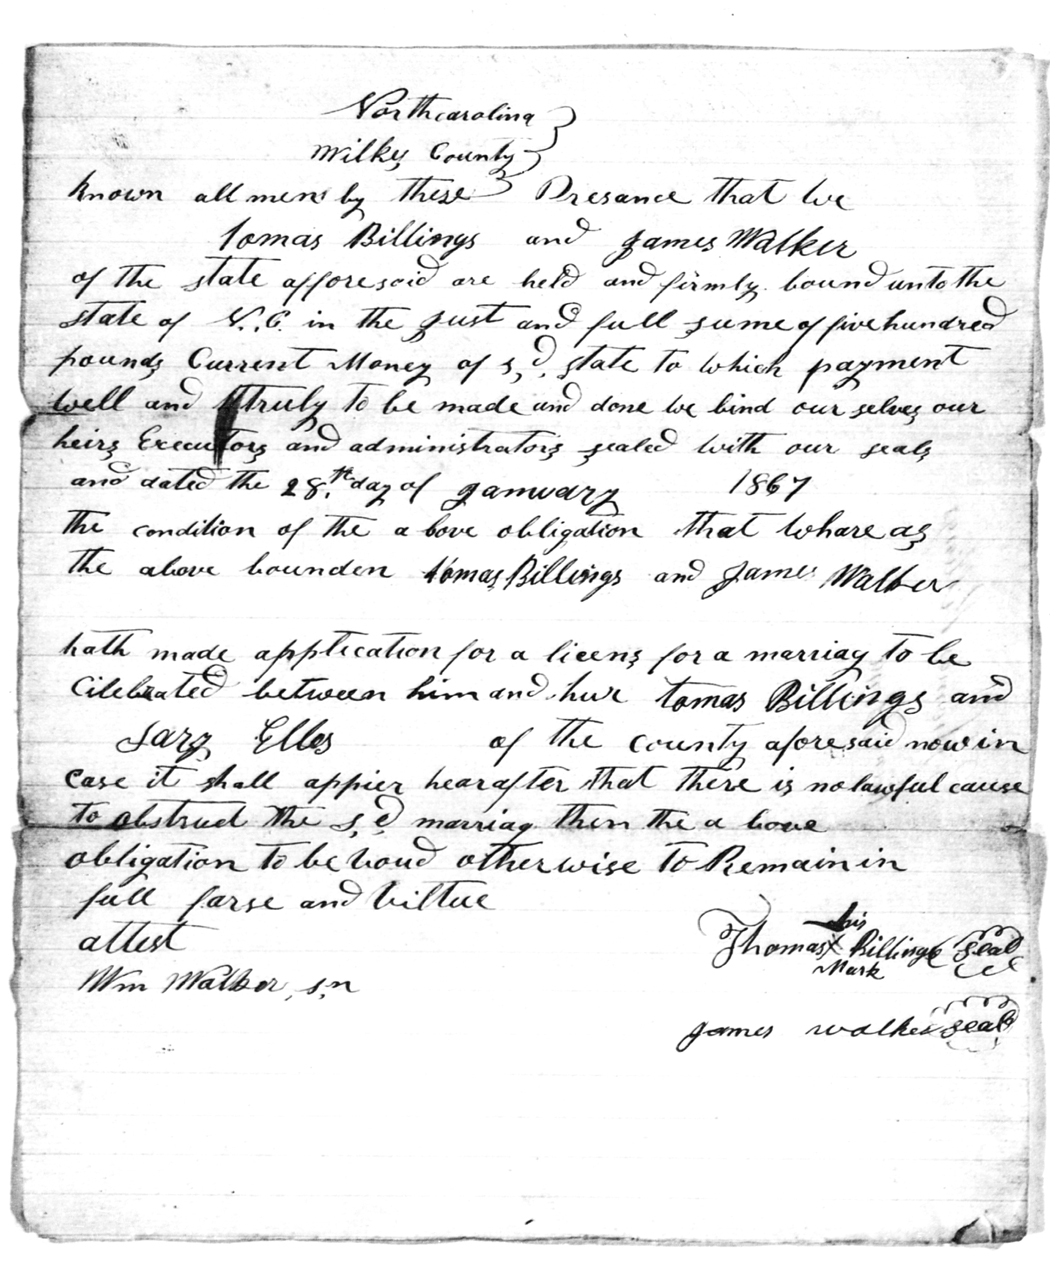 Northcarolina
Wilkes County
known all men by these Presance that we
tomas Billings and James Walker
of the state afforesaid are held and firmly bound unto the
state of N. C. in the just and full sume of five hundred
pounds Current Money of s,d, state to which payment
well and truly to be made and done we bind our selves our
heirs Executors and administrators sealed with our seals
and dated the 28,th day of January 1867
the condition of the a bove obligation that whare as
the above bounden tomas Billings and James Walker
hath made application for a licens for a marriag to be
Cilebrated between him and hur tomas Billings and
Sary Elles of the county aforesaid now in
case it shall appier hearafter that there is no lawful cause
to obstruct the s,d, marriag then the a bove
obligation to be void otherwise to Remain in
full farse and virtue
attest
Wm Walker, s,n
his
Thomas X Billings seal
Mark
James walker seal